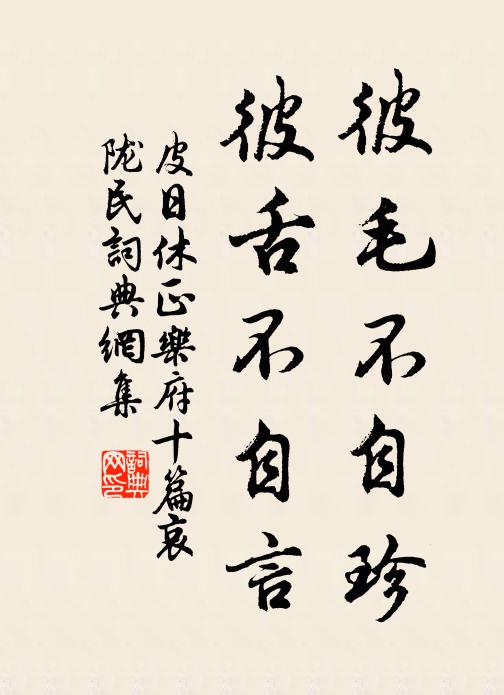 彼毛不自珍
彼舌不自言
皮日休正樂府十篇哀
隴民詞典網集
詞典网印